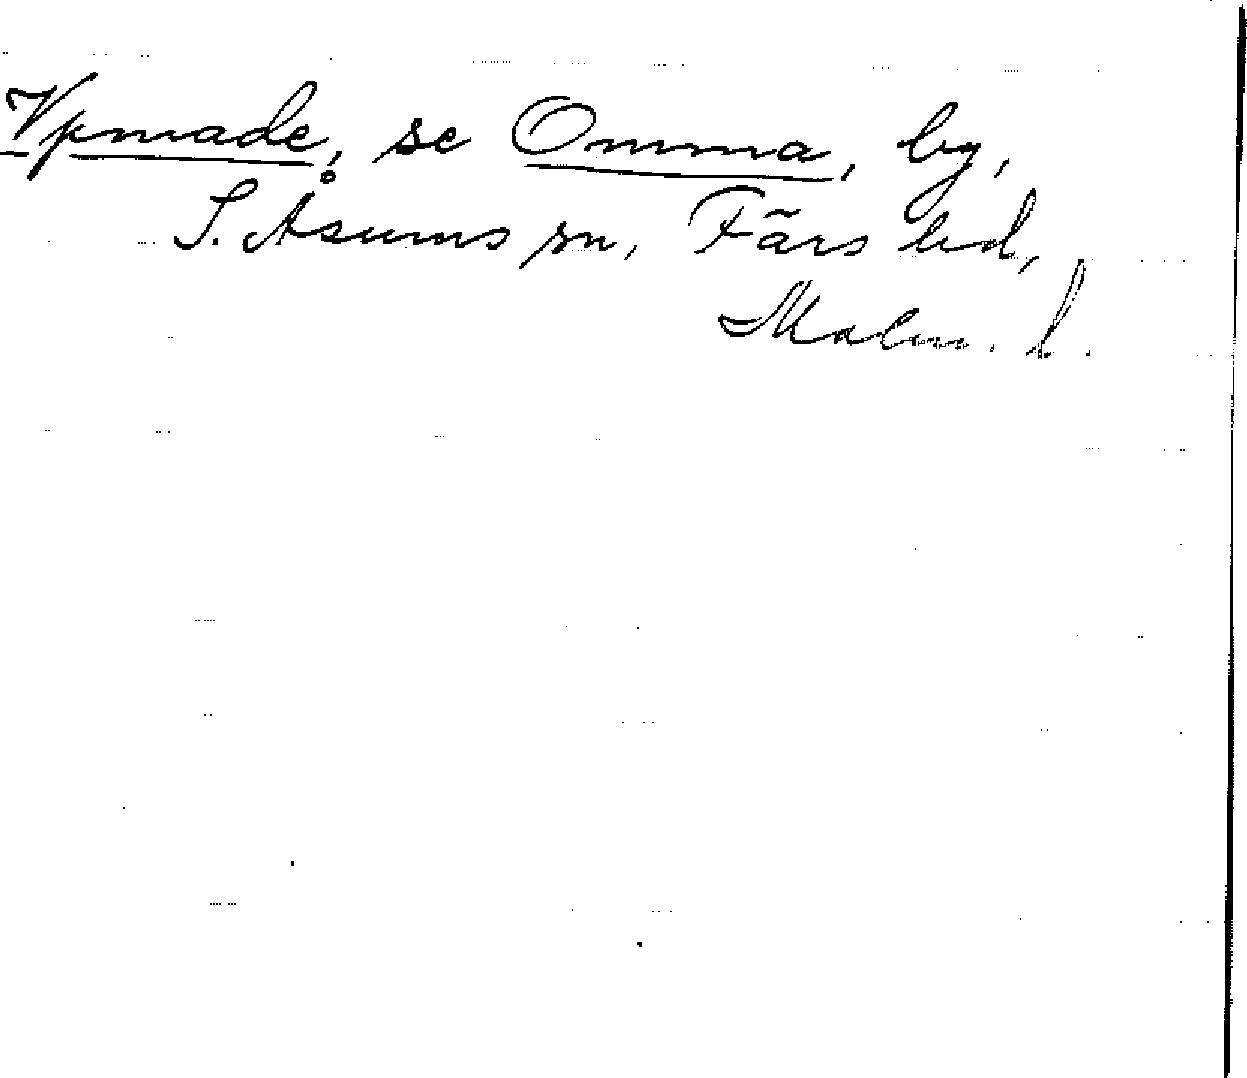 Vpmade, se Omma, by,
S. Åsums sn, Färs hd,
Malm. l.